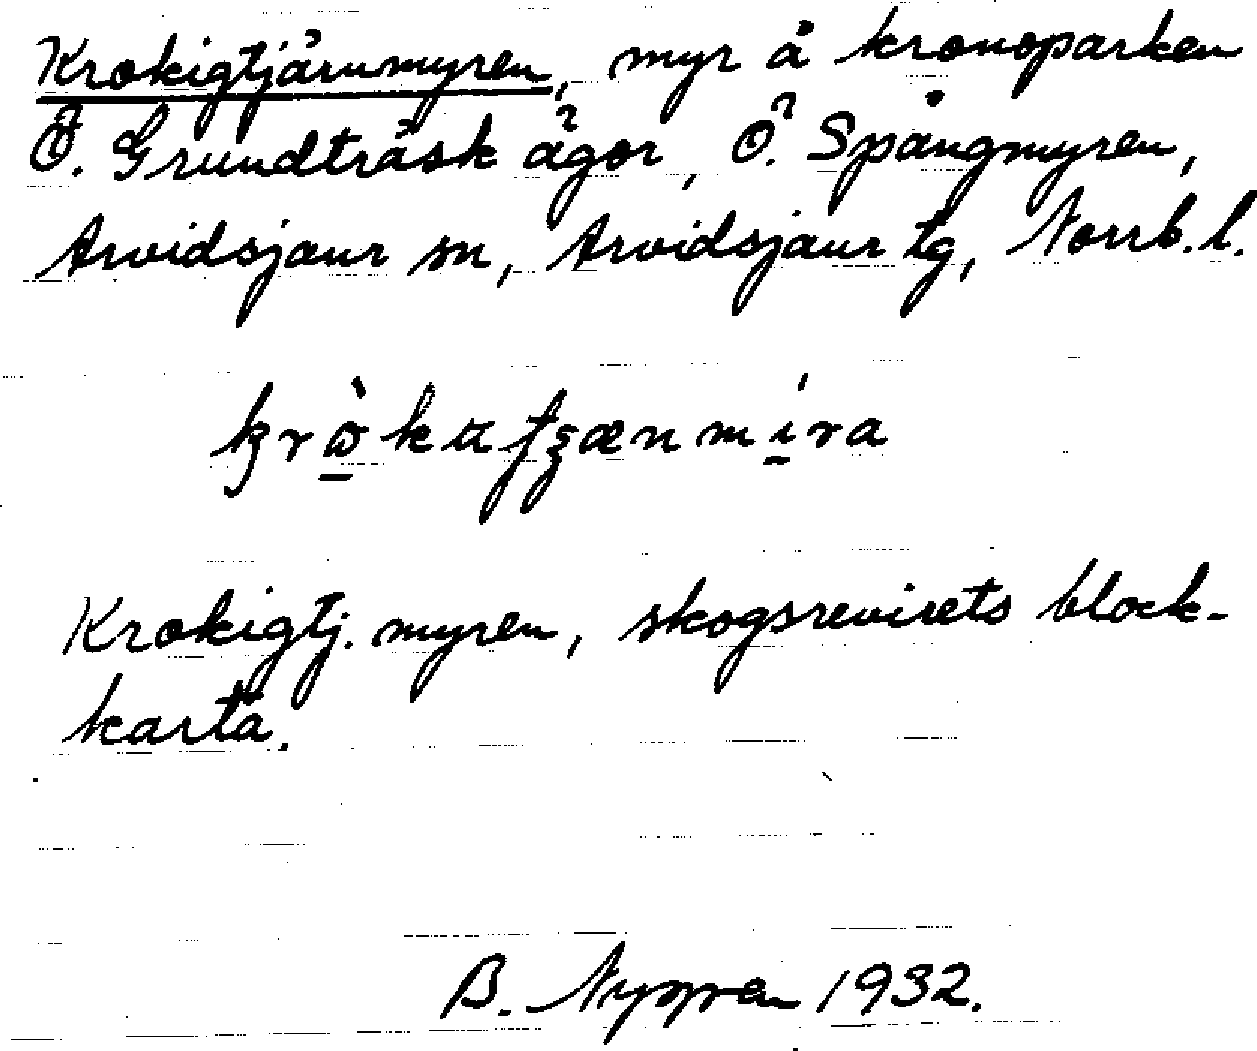 Krokigtjärnmyren, myr å kronoparken
Ö. Grundträsk ägor, Ö. Spångmyren,
Arvidsjaur sn, Arvidsjaur tg, Norrb. l.
Krokigtj. myren, skogsrevirets block-
karta.
B. 1932.